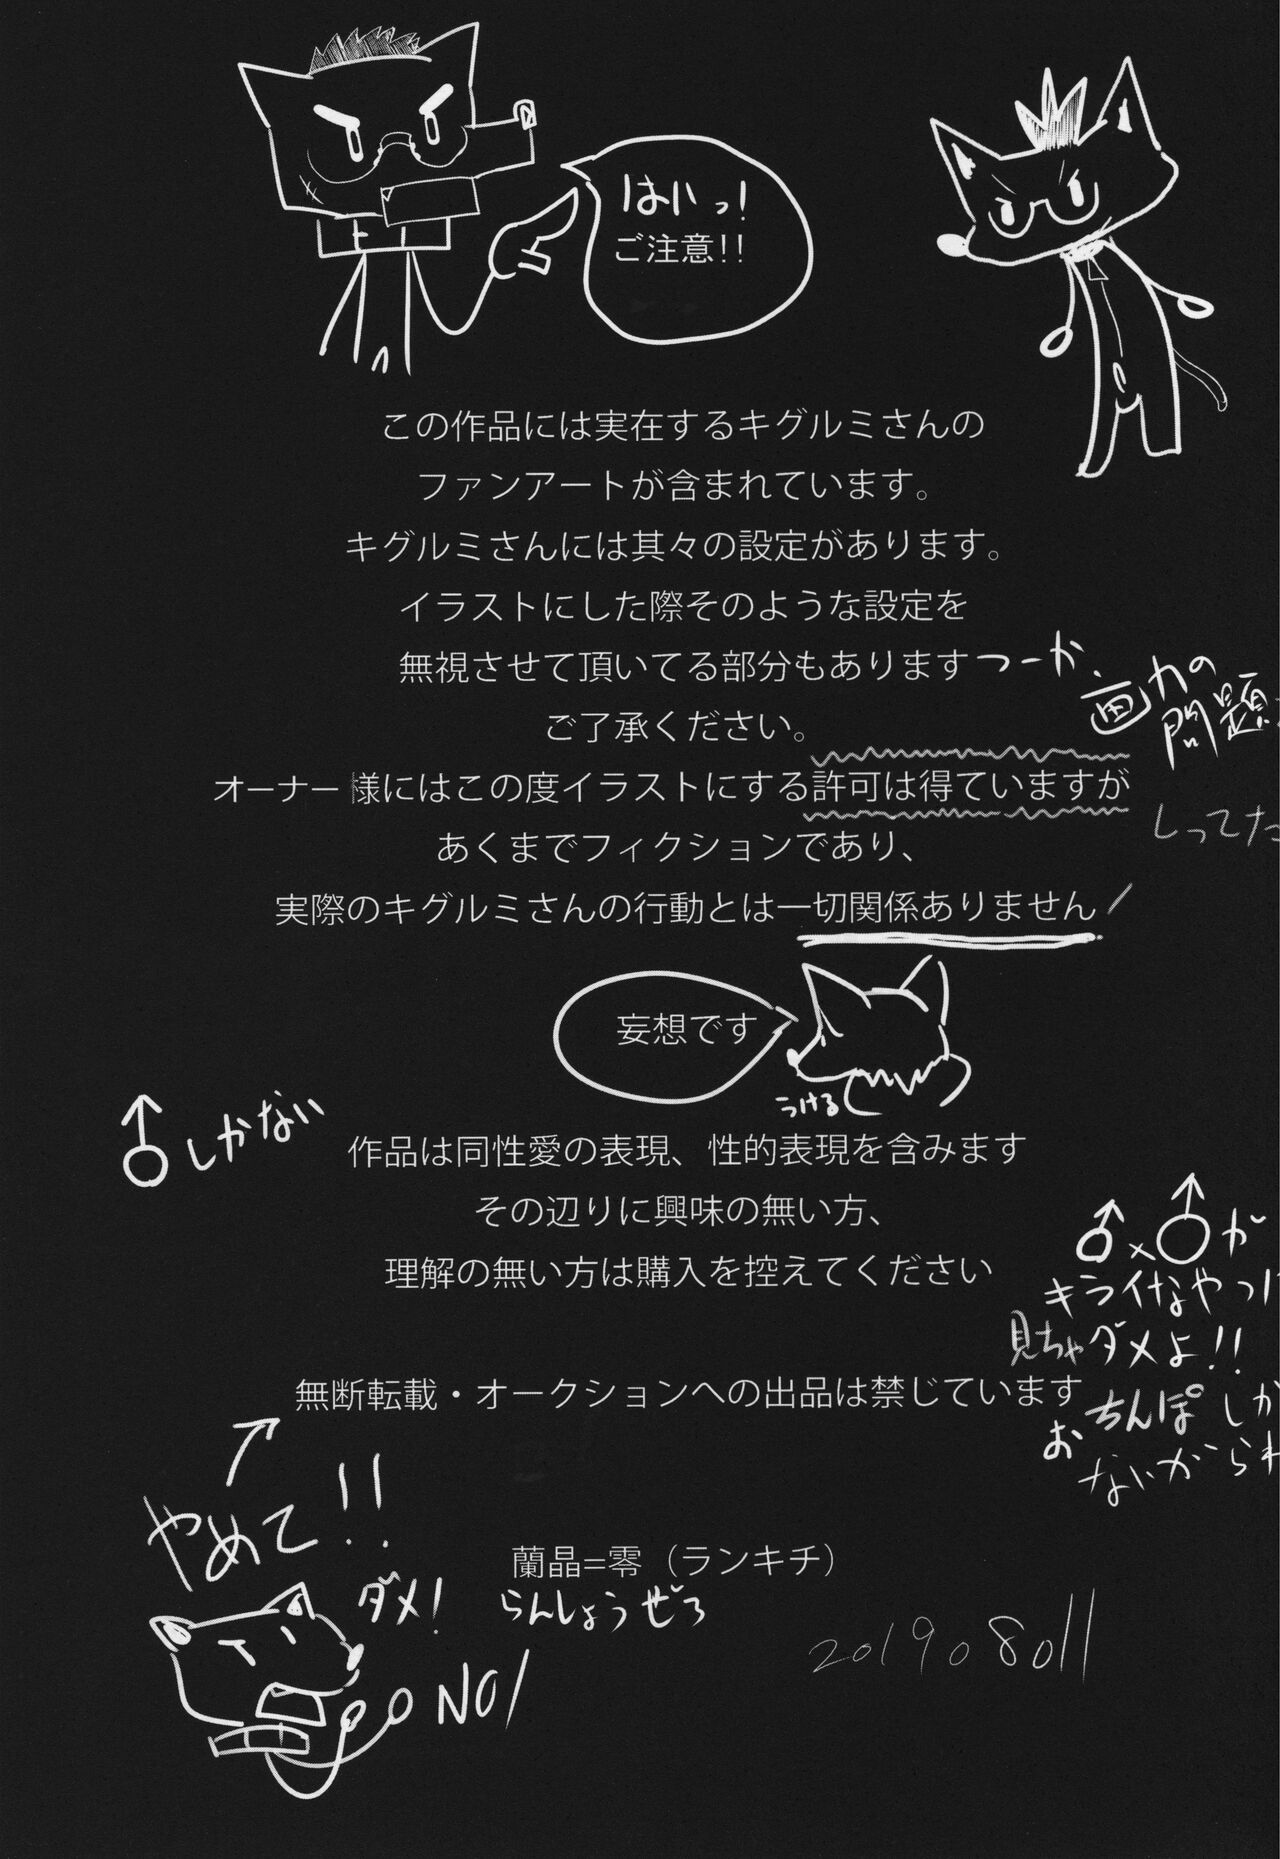 はいっ!
ご注意!!
この作品には実在するキグルミさんの
ファンアートが含まれています。
キグルミさんには其々の設定があります。
イラストにした際そのような設定を
無視させて頂いてる部分もあります
つーか、
画力の
問題
ご了承ください。
オーナー様にはこの度イラストにする許可は得ていますが
しってた
あくまでフィクションであり、
実際のキグルミさんの行動とは一切関係ありません
妄想です
うける
♂しかない
作品は同性愛の表現、性的表現を含みます
その辺りに興味の無い方、
理解の無い方は購入を控えてください
♂×♂が
キライなやつ
見ちゃダメよ!!
おちんぽしか
ないから
無断転載・オークションへの出品は禁じています
やめて!!
ダメ!
NO!
蘭晶=零（ランキチ）
らんしょうぜろ
20190801